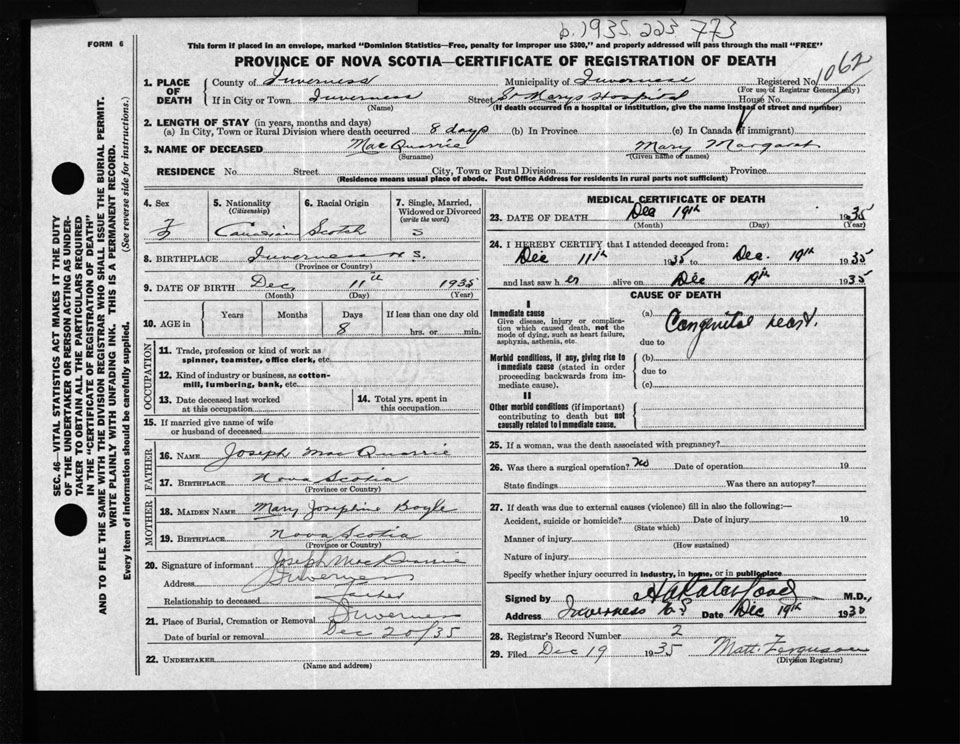 b. 1935. 223 773
FORM 6
This form if placed in an envelope, marked "Dominion Statistics—Free, penalty for improper use $300," and properly addressed will pass through the mail "FREE"
PROVINCE OF NOVA SCOTIA—CERTIFICATE OF REGISTRATION OF DEATH
1062
1. PLACE OF DEATH
County of Inverness Municipality of Inverness Registered No.
(For use of Registrar General only)
If in City or Town Inverness Street St Marys Hospital House No.
(Name) (If death occurred in a hospital or institution, give the name instead of street and number)
2. LENGTH OF STAY (in years, months and days)
(a) In City, Town or Rural Division where death occurred 8 days (b) In Province (c) In Canada (if immigrant)
3. NAME OF DECEASED MacQuarrie Mary Margaret
(Surname) (Given name or names)
RESIDENCE No. Street City, Town or Rural Division Province
(Residence means usual place of abode. Post Office Address for residents in rural parts not sufficient)
4. Sex 5. Nationality (Citizenship) 6. Racial Origin 7. Single, Married, Widowed or Divorced (write the word)
F Canadian Scotch S
8. BIRTHPLACE Inverness N.S.
(Province or Country)
9. DATE OF BIRTH Dec. 11th 1935
(Month) (Day) (Year)
10. AGE in Years Months Days If less than one day old
8 hrs. or min.
OCCUPATION
11. Trade, profession or kind of work as spinner, teamster, office clerk, etc.
12. Kind of industry or business, as cotton-mill, lumbering, bank, etc.
13. Date deceased last worked at this occupation 14. Total yrs. spent in this occupation
15. If married give name of wife or husband of deceased
FATHER
16. NAME Joseph MacQuarrie
17. BIRTHPLACE Nova Scotia
(Province or Country)
MOTHER
18. MAIDEN NAME Mary Josephine Boyle
19. BIRTHPLACE Nova Scotia
(Province or Country)
20. Signature of informant Joseph MacQuarrie
Address Inverness
Relationship to deceased Father
21. Place of Burial, Cremation or Removal Inverness
Date of burial or removal Dec 20/35
22. UNDERTAKER
(Name and address)
MEDICAL CERTIFICATE OF DEATH
23. DATE OF DEATH Dec 19th 1935
(Month) (Day) (Year)
24. I HEREBY CERTIFY that I attended deceased from:
Dec 11th 1935 to Dec. 19th 1935
and last saw h er alive on Dec 19th 1935
CAUSE OF DEATH
I
Immediate cause
Give disease, injury or complication which caused death, not the mode of dying, such as heart failure, asphyxia, asthenia, etc.
(a) Congenital heart.
due to
Morbid conditions, if any, giving rise to immediate cause (stated in order proceeding backwards from immediate cause).
(b)
due to
(c)
II
Other morbid conditions (if important) contributing to death but not causally related to immediate cause.
25. If a woman, was the death associated with pregnancy?
26. Was there a surgical operation? No Date of operation 19
State findings Was there an autopsy?
27. If death was due to external causes (violence) fill in also the following:—
Accident, suicide or homicide? Date of injury 19
(State which)
Manner of injury
(How sustained)
Nature of injury
Specify whether injury occurred in industry, in home, or in public place
Signed by M.D.,
Address Inverness N.S. Date Dec 19th 1930
28. Registrar's Record Number 2
29. Filed Dec 19 1935 Matt. Ferguson
(Division Registrar)
SEC. 46—VITAL STATISTICS ACT MAKES IT THE DUTY
OF THE UNDERTAKER OR PERSON ACTING AS UNDER-
TAKER TO OBTAIN ALL THE PARTICULARS REQUIRED
IN THE "CERTIFICATE OF REGISTRATION OF DEATH"
AND TO FILE THE SAME WITH THE DIVISION REGISTRAR WHO SHALL ISSUE THE BURIAL PERMIT.
WRITE PLAINLY WITH UNFADING INK. THIS IS A PERMANENT RECORD.
Every item of information should be carefully supplied. (See reverse side for instructions.)